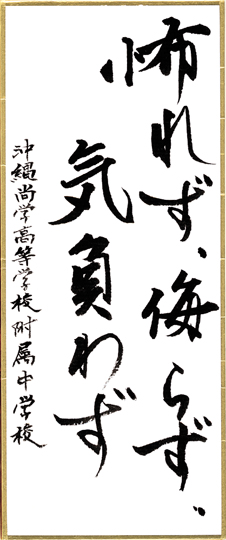 怖れず、侮らず、
気負わず
沖縄尚学高等学校附属中学校